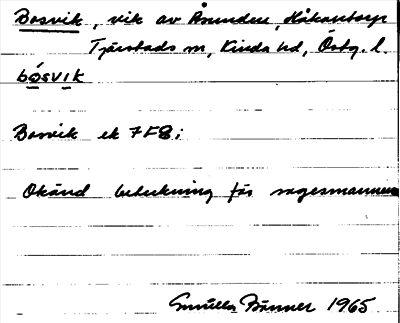 Bosvik, vik av Åsunden, Håkantorp
Tjärstads sn, Kinda hd, Östg. l.
bo̱sviḵ
Bosvik ek 7F8;
Okänd beteckning för sagesmannen
Gunilla Fränner 1965